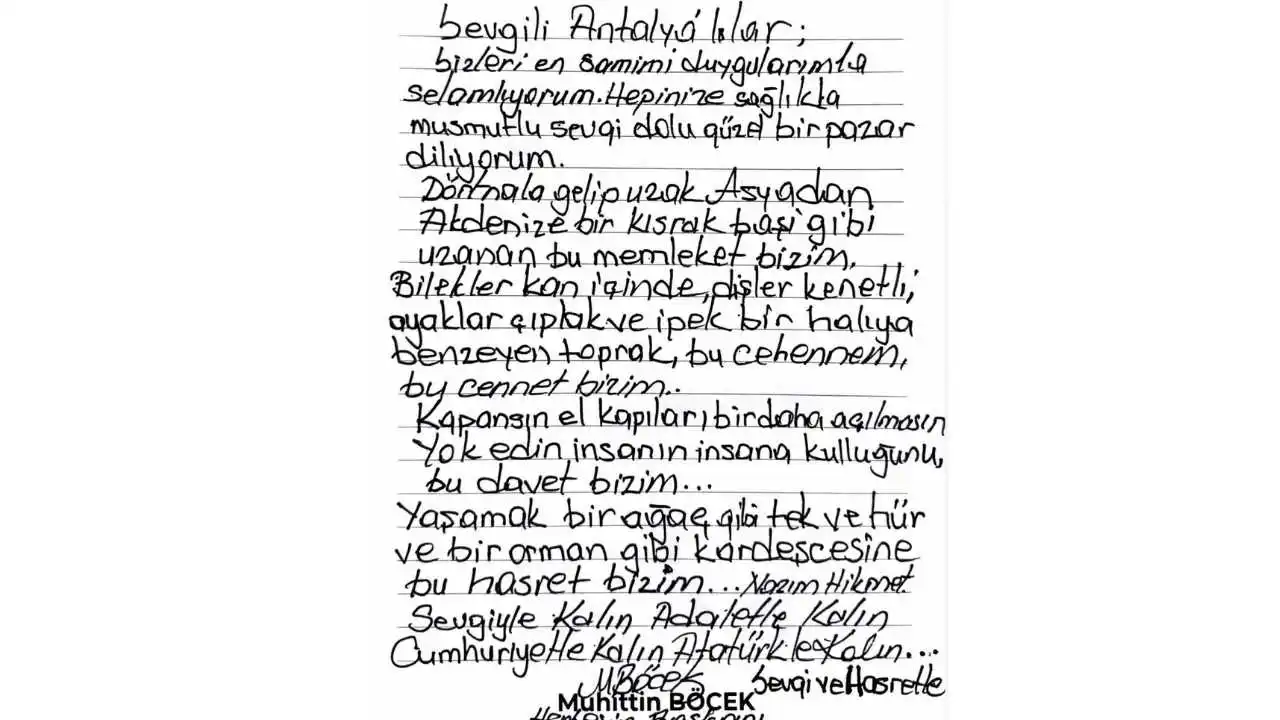 Sevgili Antalya'lılar;
bizleri en samimi duygularımla
selamlıyorum. Hepinize sağlıkla
musmutlu sevgi dolu güzel bir pazar
diliyorum.
Dörtnala gelip uzak Asyadan
Akdenize bir kısrak başı gibi
uzanan bu memleket bizim.
Bilekler kan içinde, dişler kenetli;
ayaklar çıplak ve ipek bir halıya
benzeyen toprak, bu cehennem,
bu cennet bizim..
Kapansın el kapıları, birdaha açılmasın
Yok edin insanın insana kulluğunu,
bu davet bizim...
Yaşamak bir ağaç gibi tek ve hür
ve bir orman gibi kardeşcesine
bu hasret bizim... Nazım Hikmet.
Sevgiyle Kalın Adaletle Kalın
Cumhuriyetle Kalın Atatürkle Kalın...
MBöcek Sevgi ve Hasretle
Muhittin BÖCEK